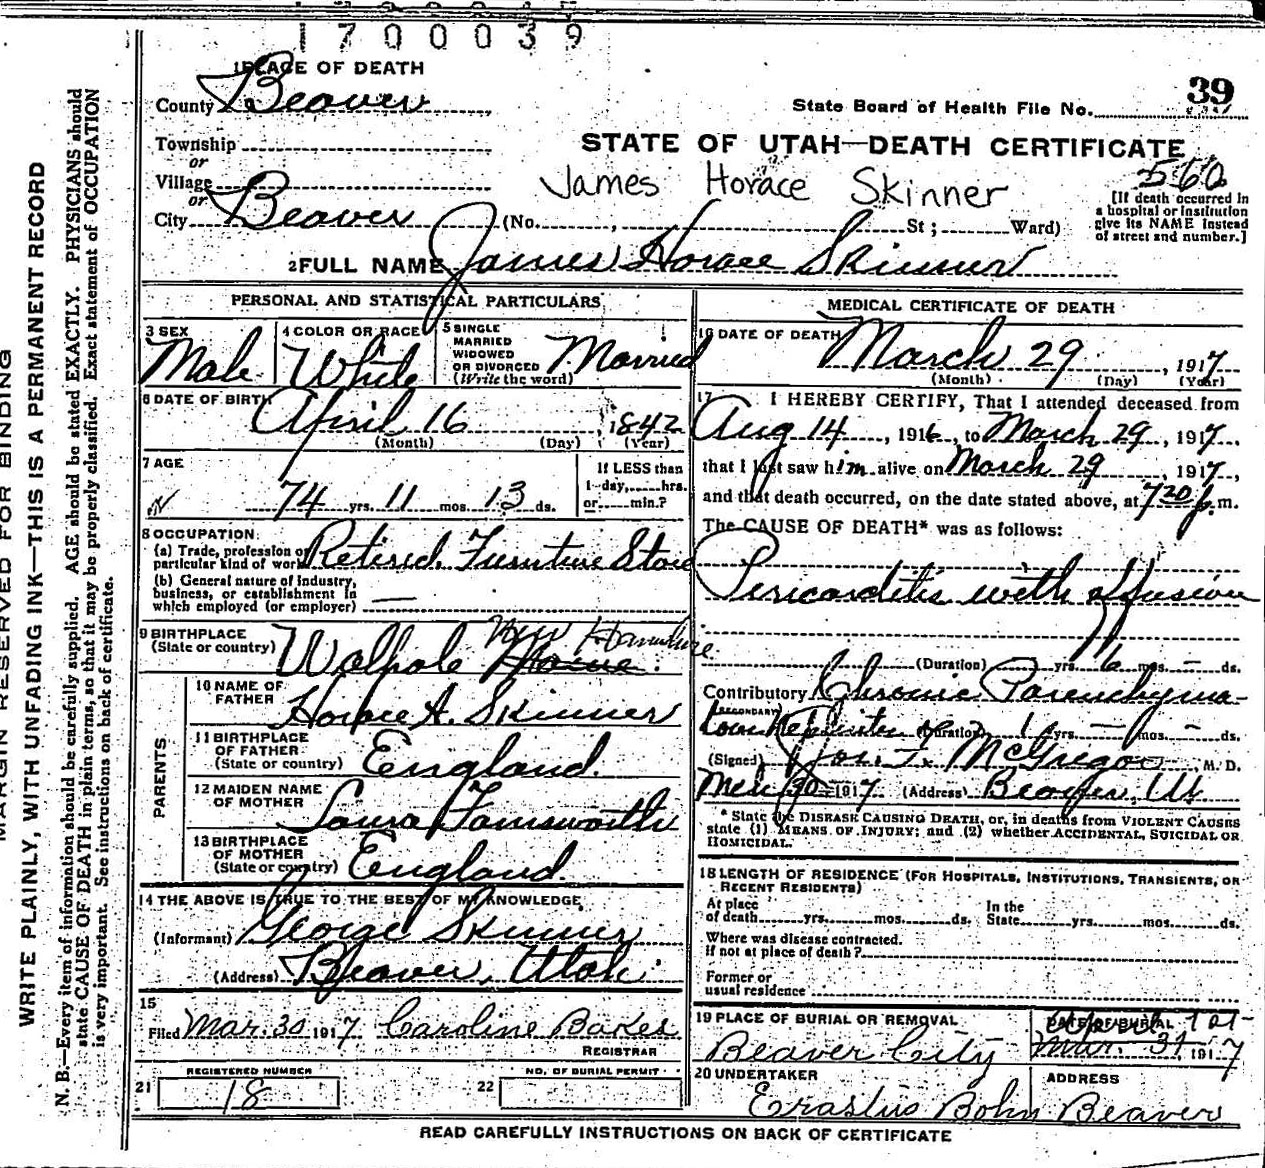 1700039
1 PLACE OF DEATH
County Beaver
39
State Board of Health File No.
Township
STATE OF UTAH—DEATH CERTIFICATE
or
Village
James Horace Skinner
560
[If death occurred in a hospital or institution give its NAME instead of street and number.]
or
City Beaver (No. , St ; Ward)
2 FULL NAME James Horace Skinner
PERSONAL AND STATISTICAL PARTICULARS
3 SEX Male
4 COLOR OR RACE White
5 SINGLE MARRIED WIDOWED OR DIVORCED (Write the word) Married
6 DATE OF BIRTH April 16, 1842
(Month) (Day) (Year)
7 AGE
74 yrs. 11 mos. 13 ds.
If LESS than
1 day, hrs.
or min.?
8 OCCUPATION
(a) Trade, profession or
particular kind of work Retired. Furniture Store
(b) General nature of industry,
business, or establishment in
which employed (or employer) —
9 BIRTHPLACE
(State or country) Walpole New Hampshire
PARENTS
10 NAME OF
FATHER Horace A. Skinner
11 BIRTHPLACE
OF FATHER
(State or country) England.
12 MAIDEN NAME
OF MOTHER Laura Farnsworth
13 BIRTHPLACE
OF MOTHER
(State or country) England.
14 THE ABOVE IS TRUE TO THE BEST OF MY KNOWLEDGE
(Informant) George Skinner
(Address) Beaver, Utah.
15
Filed Mar. 30 1917 Caroline Bakes
REGISTRAR
21 REGISTERED NUMBER
18
22 NO. OF BURIAL PERMIT
MEDICAL CERTIFICATE OF DEATH
16 DATE OF DEATH March 29, 1917
(Month) (Day) (Year)
17 I HEREBY CERTIFY, That I attended deceased from
Aug 14, 1916, to March 29, 1917,
that I last saw him alive on March 29, 1917,
and that death occurred, on the date stated above, at 7 20 p.m.
The CAUSE OF DEATH* was as follows:
Pericarditis with effusion
(Duration) yrs. 6 mos. – ds.
Contributory Chronic Parenchyma-
(SECONDARY) tous Nephritis (Duration) 1 yrs. – mos. – ds.
(Signed) McGregor M. D.
Mch 30 1917 (Address) Beaver, Ut
* State the DISEASE CAUSING DEATH, or, in deaths from VIOLENT CAUSES
state (1) MEANS OF INJURY; and (2) whether ACCIDENTAL, SUICIDAL OR
HOMICIDAL.
18 LENGTH OF RESIDENCE (FOR HOSPITALS, INSTITUTIONS, TRANSIENTS, OR
RECENT RESIDENTS)
At place
of death yrs. mos. ds.
In the
State yrs. mos. ds.
Where was disease contracted.
if not at place of death?
Former or
usual residence
19 PLACE OF BURIAL OR REMOVAL
Beaver City
DATE OF BURIAL
April 1st
Mar. 31 1917
20 UNDERTAKER
Erastus Bohn
ADDRESS
Beaver
READ CAREFULLY INSTRUCTIONS ON BACK OF CERTIFICATE
MARGIN RESERVED FOR BINDING
WRITE PLAINLY, WITH UNFADING INK—THIS IS A PERMANENT RECORD
N. B.—Every item of information should be carefully supplied. AGE should be stated EXACTLY. PHYSICIANS should
state CAUSE OF DEATH in plain terms, so that it may be properly classified. Exact statement of OCCUPATION
is very important. See instructions on back of certificate.